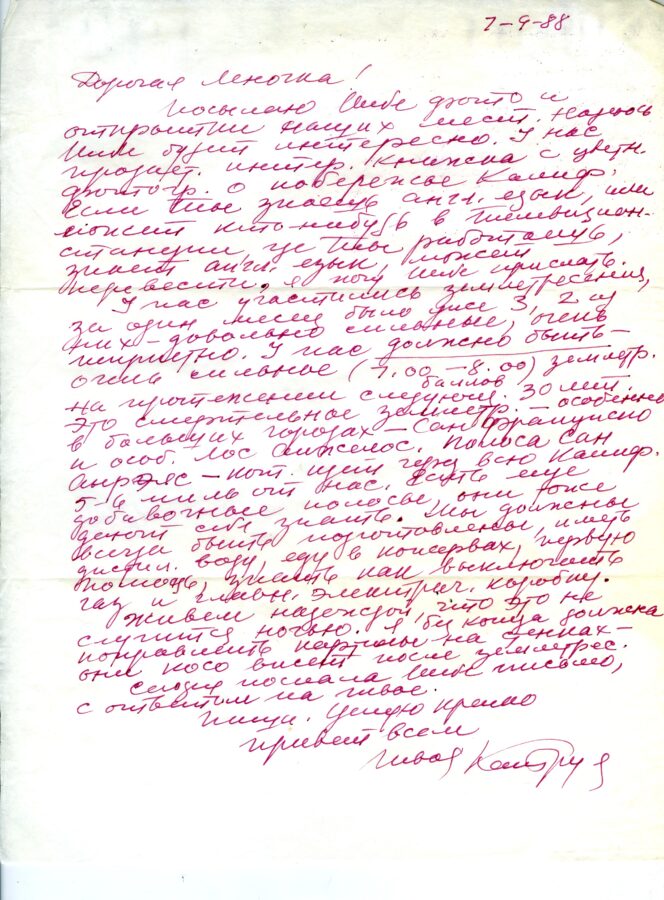 7-9-88
Дорогая Леночка!
Посылаю тебе фото и
открытки наших мест. Надеюсь
тебе будет интересно. У нас
продает. интер. книжка с цветн.
фотогр. о побережье Калиф.
Если ты знаешь англ. язык, или
может кто-нибудь в телевизион-
станции где ты работаешь,
знает англ. язык, может
перевести, я могу тебе прислать.
У нас участились землетресения,
за один месяц было уже 3, 2 из
них - довольно сильные, очень
неприятно. У нас должно быть
очень сильное (7.00 - 8.00) землетр.
баллов
на протяжении следующ. 30 лет.
Это смертельное землетр. - особенно
в больших городах - Сан Франциско
и особ. Лос Анжелос. Полоса Сан
Андрэяс - кот. идет через всю Калиф.
5-6 миль от нас. Есть еще
добавочные полосы, они тоже
дают себя знать. Мы должны
всегда быть подготовлены, иметь
дистил. воду, еду в консервах, первую
помощь, знать как выключать
газ и главн. электрич. коробку.
Живем надеждой, что это не
случится ночью. Я без конца должна
поправлять картины на стенках -
они косо висят после землетрес.
Сегодня послала тебе письмо,
с ответом на твое.
Пиши. Целую крепко
Привет всем
твоя